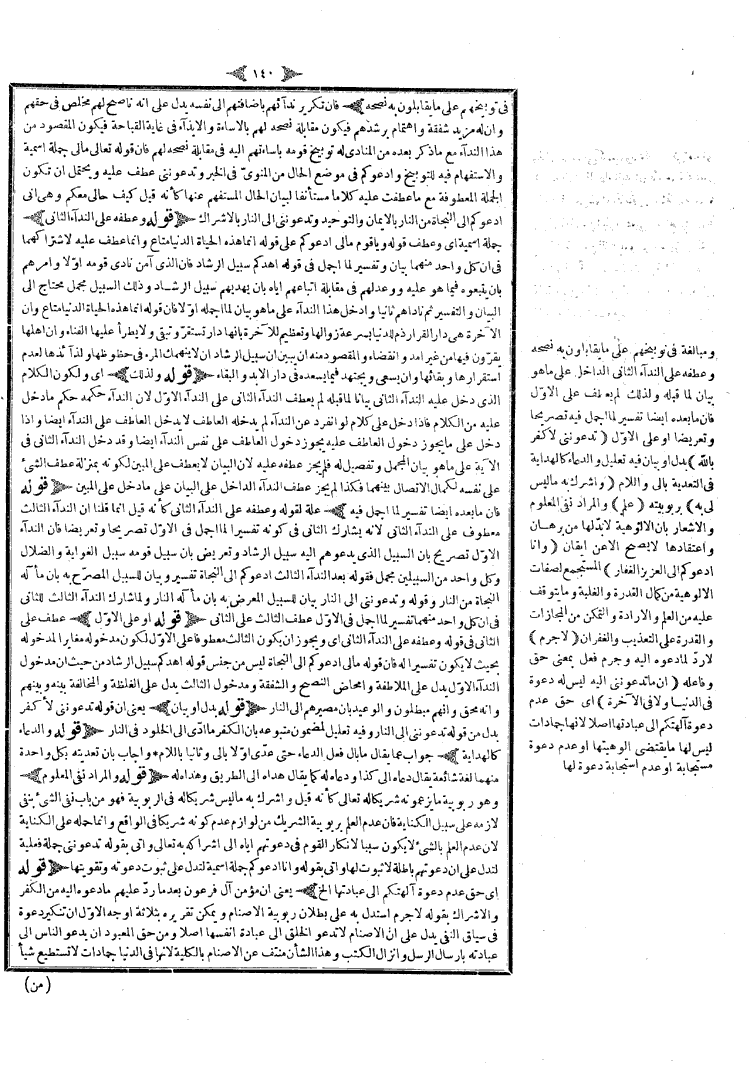 ١٤٠
فى توبيخهم على ما يقابلون به نصحه فان تكرير ندآئهم باضافتهم الى نفسه يدل على انه ناصح لهم مخلص فى حقهم
وان له مزيد شفقة واهتمام برشدهم فيكون مقابلة نصحه لهم بالاساءة والايذآء فى غاية القباحة فيكون المقصود من
هذا الندآء مع ماذكر بعده من المنادى له توبيخ قومه باساءتهم اليه فى مقابلة نصحه لهم فان قوله تعالى مالى جملة اسمية
والاستفهام فيه للتوبيخ وادعوكم فى موضع الحال من المنوى فى الخبر وتدعوننى عطف عليه ويحتمل ان تكون
الجملة المعطوفة مع ماعطفت عليه كلاما مستأنفا لبيان الحال المستفهم عنها كأنه قيل كيف حالى معكم وهى انى
ادعوكم الى النجاة من النار بالايمان والتوحيد وتدعوننى الى النار بالاشراك قوله وعطفه على الندآء الثانى
جملة اسمية اى وعطف قوله وياقوم مالى ادعوكم على قوله انما هذه الحياة الدنيا متاع وانما عطف عليه لاشتراكهما
فى ان كل واحد منهما بيان وتفسير لما اجمل فى قوله اهدكم سبيل الرشاد فان الذى آمن نادى قومه اولا وامرهم
بان يتبعوه فيما هو عليه ووعدلهم فى مقابلة اتباعهم اياه بان يهديهم سبيل الرشاد وذلك السبيل مجمل محتاج الى
البيان والتفسير ثم ناداهم ثانيا وادخل هذا الندآء على ماهو بيان لما اجمله اولا فان قوله انما هذه الحياة الدنيا متاع وان
الآخرة هى دار القرار ذم للدنيا بسرعة زوالها وتعظيم للآخرة بانها دار تستقر وتبقى ولا يطرأ عليها الفناء وان اهلها
يقرون فيها من غير امد وانقضاء والمقصود منه ان يبين ان سبيل الرشاد ان لا ينهمك المرء فى حظوظها ولذآئذها لعدم
استقرارها وبقائها وان يسعى ويجتهد فيما يسعده فى دار الابد والبقاء قوله ولذلك اى ولكون الكلام
الذى دخل عليه الندآء الثانى بيانا لما قبله لم يعطف الندآء الثانى على الندآء الاول لان الندآء حكمه حكم مادخل
عليه من الكلام فاذا دخل على كلام لو انفرد عن الندآء لم يدخله العاطف لا يدخل العاطف على الندآء ايضا واذا
دخل على مايجوز دخول العاطف عليه يجوز دخول العاطف على نفس الندآء ايضا وقد دخل الندآء الثانى فى
الآية على ماهو بيان المجمل وتفصيل له فلم يجز عطفه عليه لان البيان لا يعطف على المبين لكونه بمنزلة عطف الشئ
على نفسه لكمال الاتصال بينهما فكذا لم يجز عطف الندآء الداخل على البيان على مادخل على المبين قوله
فان مابعده ايضا تفسير لما اجمل فيه علة لقوله وعطفه على الندآء الثانى كأنه قيل انما قلنا ان الندآء الثالث
معطوف على الندآء الثانى لانه يشارك الثانى فى كونه تفسيرا لما اجمل فى الاول تصريحا وتعريضا فان الندآء
الاول تصريح بان السبيل الذى يدعوهم اليه سبيل الرشاد وتعريض بان سبيل قومه سبيل الغواية والضلال
وكل واحد من السبيلين مجمل فقوله بعد الندآء الثالث ادعوكم الى النجاة تفسير وبيان للسبيل المصرح به بان مآله
النجاة من النار وقوله وتدعوننى الى النار بيان للسبيل المعرض به بان مآله النار ولما شارك الندآء الثالث للثانى
فى ان كل واحد منهما تفسير لما اجمل فى الاول عطف الثالث على الثانى قوله او على الاول عطف على
الثانى فى قوله وعطفه على الندآء الثانى اى ويجوز ان يكون الثالث معطوفا على الاول لكون مدخوله مغايرا لمدخوله
بحيث لا يكون تفسيرا له فان قوله مالى ادعوكم الى النجاة ليس من جنس قوله اهدكم سبيل الرشاد من حيث ان مدخول
الندآء الاول يدل على الملاطفة وامحاض النصح والشفقة ومدخول الثالث يدل على الغلظة والمخالفة بينه وبينهم
وانه محق وانهم مبطلون والوعيد بان مصيرهم الى النار قوله بدل او بيان يعنى ان قوله تدعوننى لأكفر
بدل من قوله تدعوننى الى النار وفيه تعليل لمضمون متبوعه بان الكفر مما ادى الى الخلود فى النار قوله والدعاء
كالهداية جواب عما يقال مابال فعل الدعاء حتى عدى اولا بالى وثانيا باللام واجاب بان تعديته بكل واحدة
منهما لغة شائعة يقال دعاه الى كذا ودعاه له كما يقال هداه الى الطريق وهداه له قوله والمراد نفى المعلوم
وهو ربوبية مايزعمونه شريكا له تعالى كأنه قيل واشرك به ماليس شريكا له فى الربوبية فهو من باب نفى الشئ بنفى
لازمه على سبيل الكناية فان عدم العلم بربوبية الشريك من لوازم عدم كونه شريكا فى الواقع وانما حمله على الكناية
لان عدم العلم بالشئ لا يكون سببا لانكار القوم فى دعوتهم اياه الى اشراكه به تعالى واتى بقوله تدعوننى جملة فعلية
لتدل على ان دعوتهم باطلة لا ثبوت لها واتى بقوله وانا ادعوكم جملة اسمية لتدل على ثبوت دعوته وتقويتها قوله
اى حق عدم دعوة آلهتكم الى عبادتها الخ يعنى ان مؤمن آل فرعون بعد ما رد عليهم مادعوه اليه من الكفر
والاشراك بقوله لا جرم استدل به على بطلان ربوبية الاصنام ويمكن تقريره بثلاثة اوجه الاول ان تنكير دعوة
فى سياق النفى يدل على ان الاصنام لا تدعو الخلق الى عبادة انفسها اصلا ومن حق المعبود ان يدعو الناس الى
عبادته بارسال الرسل وانزال الكتب وهذا الشأن منتف عن الاصنام بالكلية لانها فى الدنيا جمادات لا تستطيع شيأ
(من)
ومبالغة فى توبيخهم على مايقابلون به نصحه
وعطفه على الندآء الثانى الداخل على ماهو
بيان لما قبله ولذلك لم يعطف على الاول
فان مابعده ايضا تفسير لما اجمل فيه تصريحا
وتعريضا او على الاول (تدعوننى لاكفر
بالله) بدل او بيان فيه تعليل والدعاء كالهداية
فى التعدية بالى واللام (واشرك به ماليس
لى به) بربوبيته (علم) والمراد نفى المعلوم
والاشعار بان الالوهية لابد لها من برهان
واعتقادها لا يصح الا عن ايقان (وانا
ادعوكم الى العزيز الغفار) المستجمع لصفات
الالوهية من كمال القدرة والغلبة وما يتوقف
عليه من العلم والارادة والتمكن من المجازات
والقدرة على التعذيب والغفران (لا جرم)
لا رد لما دعوه اليه وجرم فعل بمعنى حق
وفاعله (ان ماتدعوننى اليه ليس له دعوة
فى الدنيا ولا فى الآخرة) اى حق عدم
دعوة آلهتكم الى عبادتها اصلا لانها جمادات
ليس لها مايقتضى الوهيتها او عدم دعوة
مستجابة او عدم استجابة دعوة لها